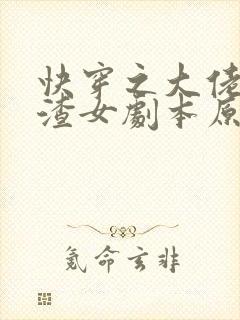 快穿之大佬
渣女劇本原
氪命玄非